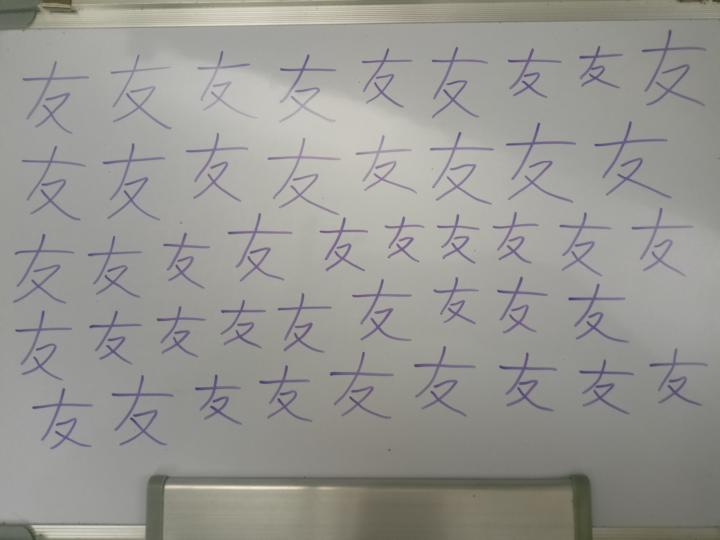 友友友友友友友友友
友友友友友友友友
友友友友友友友友友友
友友友友友友友友友
友友友友友友友友友